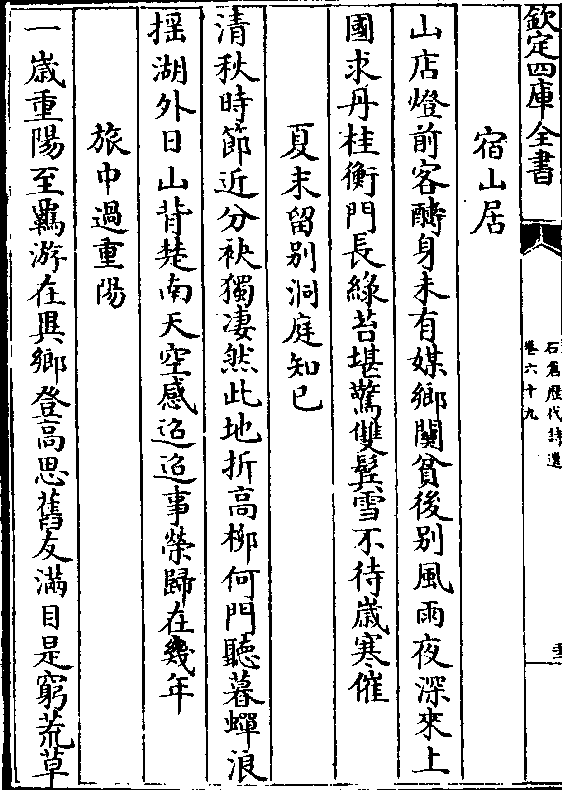 欽定四庫全書
石倉歷代詩選
卷六十九
宿山居
山店燈前客酬身未有媒鄉關貧後别風雨夜深來上
國求丹桂衡門長綠苔堪驚雙鬂雪不待歲寒催
夏末留别洞庭知已
清秋時節近分袂獨凄然此地折高栁何門聽暮蟬浪
揺湖外日山背楚南天空感迢迢事榮歸在幾年
旅中過重陽
一歲重陽至羈游在異鄉登高思舊友滿目是窮荒草